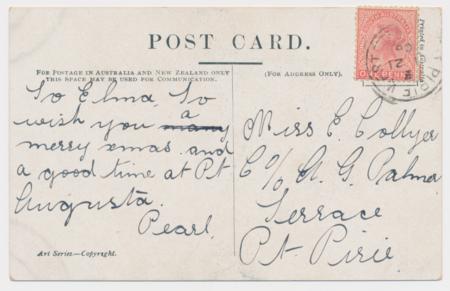 POST CARD.
FOR POSTAGE IN AUSTRALIA AND NEW ZEALAND ONLY
THIS SPACE MAY BE USED FOR COMMUNICATION.
(FOR ADDRESS ONLY.)
To Elma, To
wish you a
merry xmas and
a good time at Pt
Augusta.
Pearl.
Art Series.—Copyright.
Miss E. Collyer
C/o A. G. Palma
Terrace
Pt. Pirie.
ONE PENNY